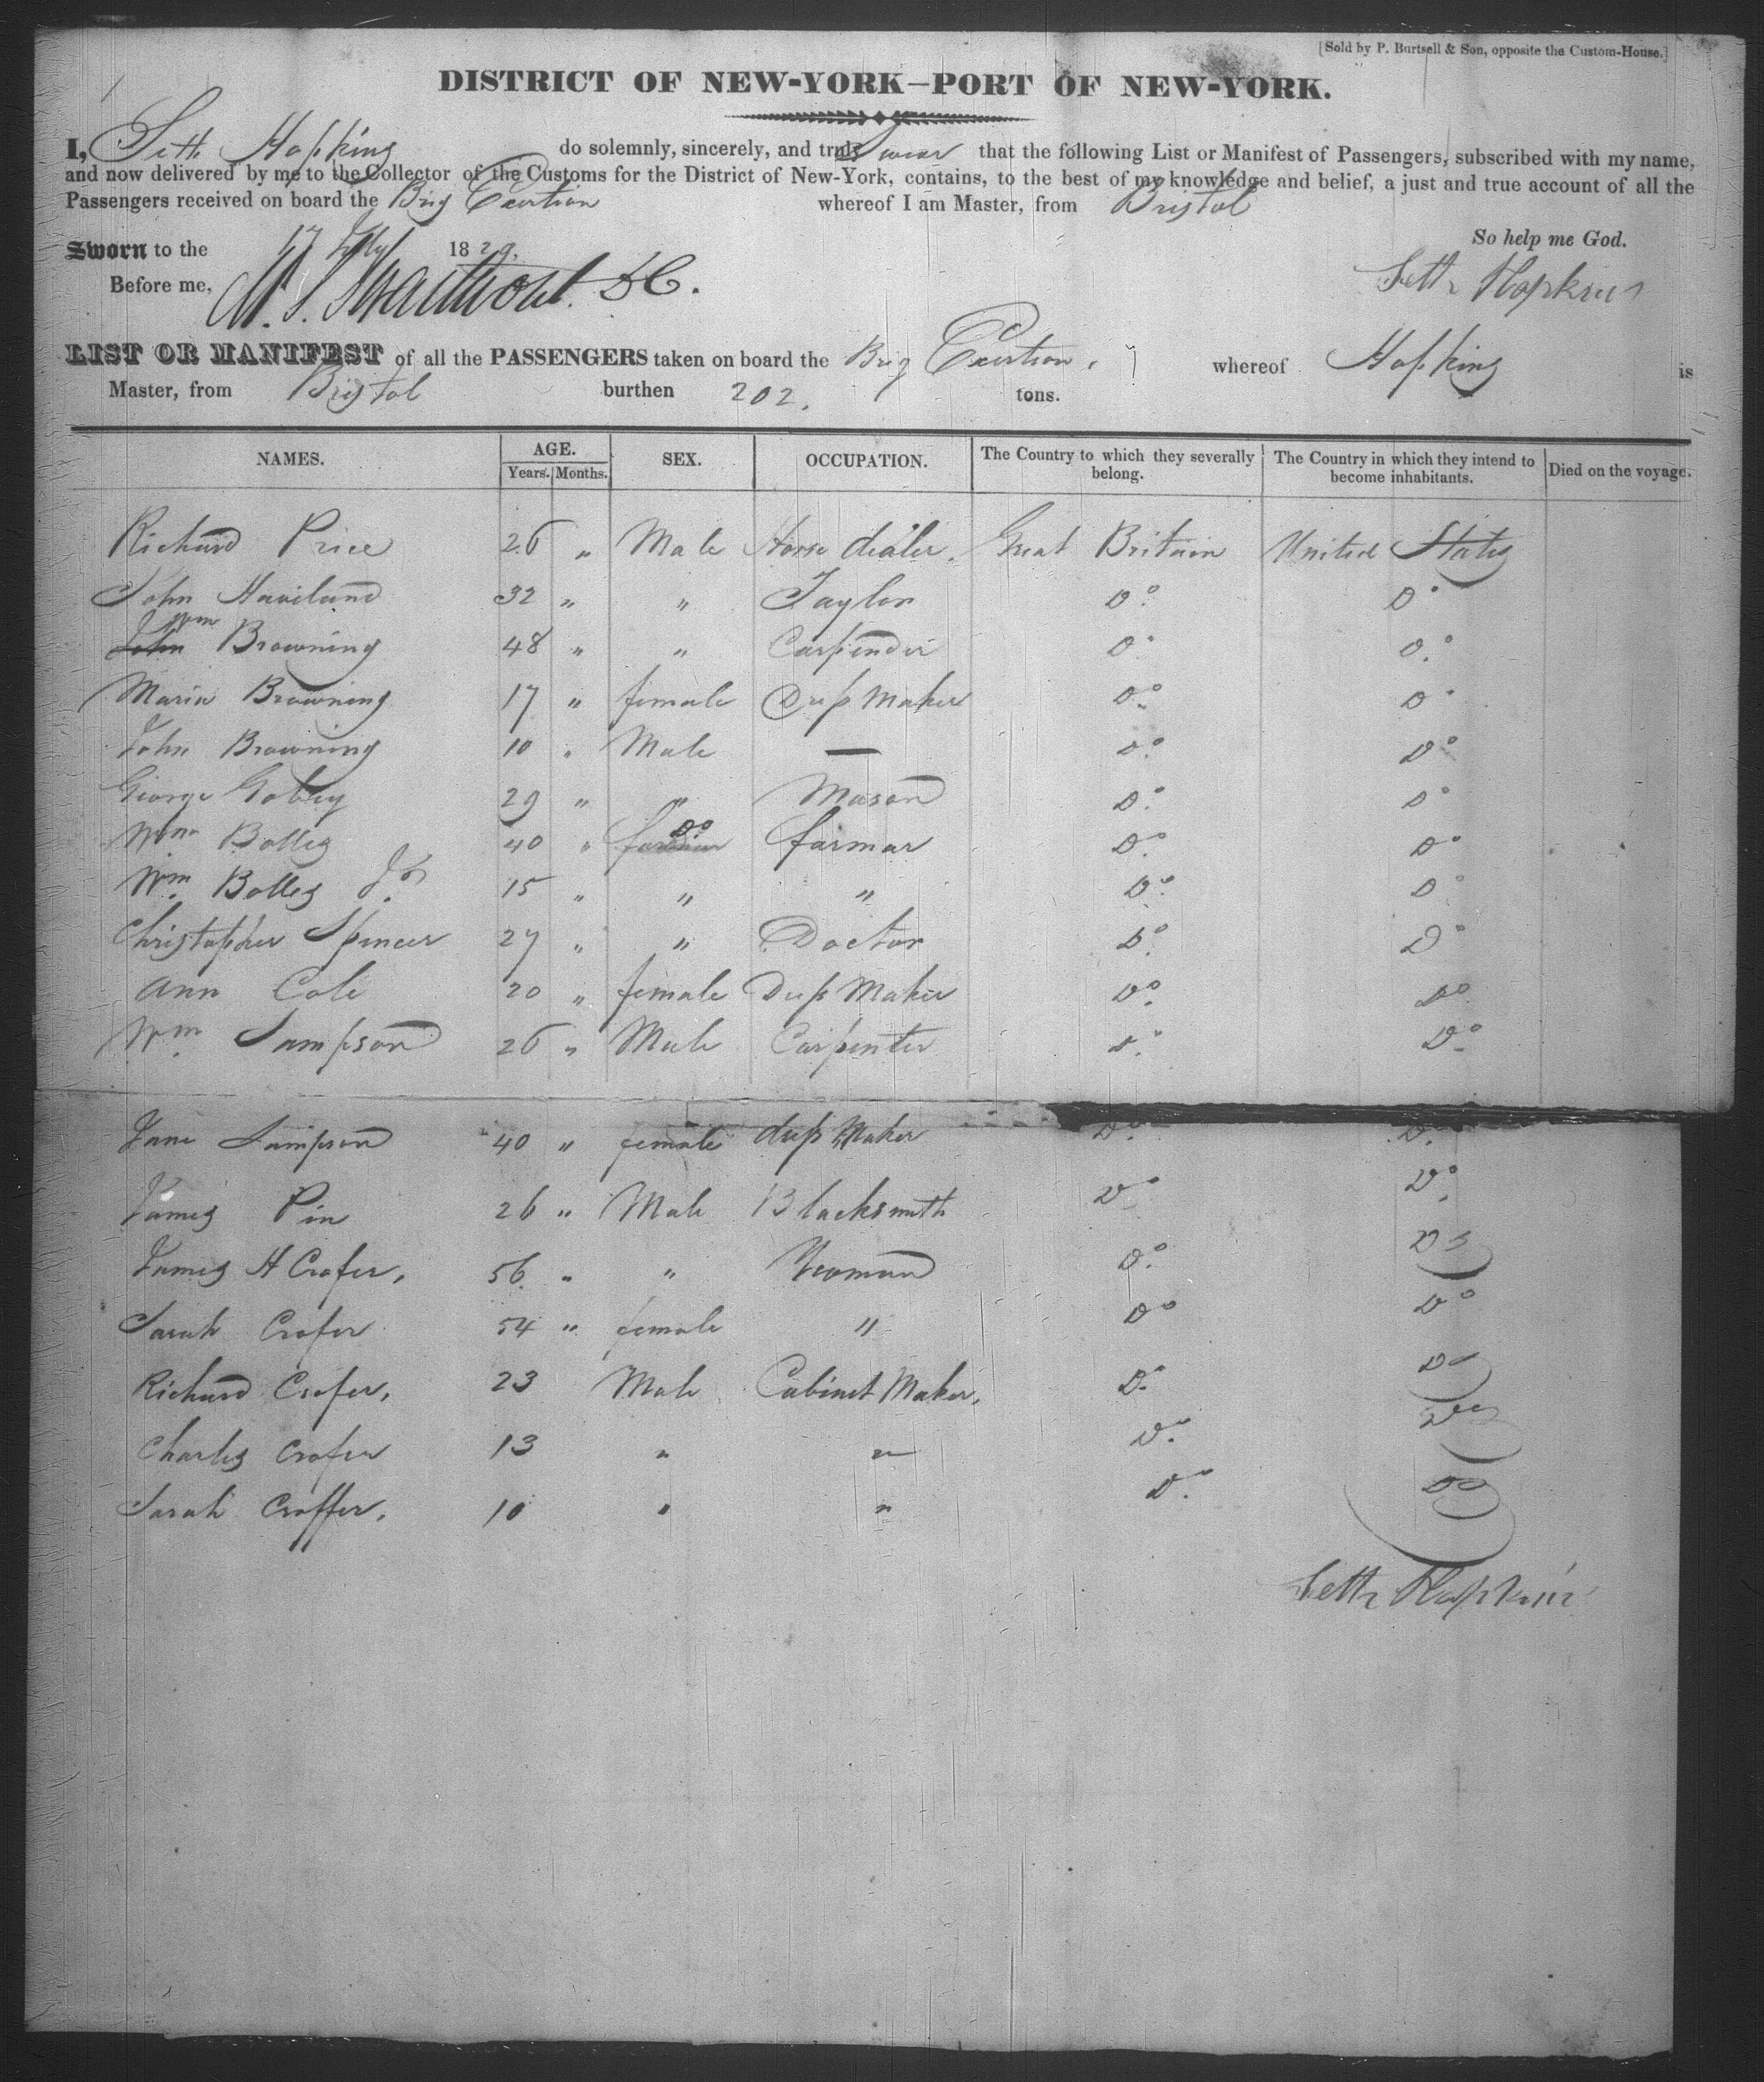 [Sold by P. Burtsell & Son, opposite the Custom-House.]
DISTRICT OF NEW-YORK—PORT OF NEW-YORK.
I, Seth Hopkins do solemnly, sincerely, and truly Swear that the following List or Manifest of Passengers, subscribed with my name,
and now delivered by me to the Collector of the Customs for the District of New-York, contains, to the best of my knowledge and belief, a just and true account of all the
Passengers received on board the Brig Exertion whereof I am Master, from Bristol
Sworn to the 17 1829. So help me God.
Before me, Seth Hopkins
LIST OR MANIFEST of all the PASSENGERS taken on board the Brig Exertion, whereof Hopkins is
Master, from Bristol burthen 202. tons.
NAMES. AGE. Years. Months. SEX. OCCUPATION. The Country to which they severally belong. The Country in which they intend to become inhabitants. Died on the voyage.
Richard Price 26 " Male Horse dealer. Great Britain United States
John Haviland 32 " " Taylor Do. Do
John Wm Browning 48 " " Carpender Do Do.
Maria Browning 17 " female Dress Maker Do. Do
John Browning 10 " Male — Do. Do
George Gobey 29 " " Mason Do. Do
Wm Bolles 40 " Do farmar Do. Do
Wm. Bolles Jr. 15 " " " Do. Do
Christopher Spencer 27 " " Doctor Do. Do
Ann Cole 20 " female Dress Maker Do. Do
Wm. Sampson 26 " Male Carpenter Do. Do.
Jane Sampson 40 " female dress Maker Do. Do.
James Pin 26 " Male Blacksmith Do Do.
James H Crofer, 56 " " Yeoman Do. Do
Sarah Crofer 54 " female " Do Do
Richard Crofer, 23 Male Cabinet Maker, Do. Do
Charles Crofer 13 " " Do. Do
Sarah Croffer, 10 " " Do. Do
Seth Hopkins